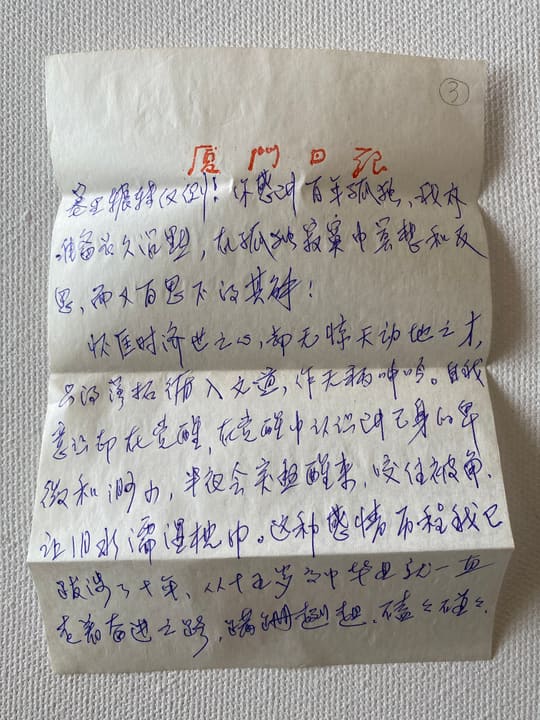 ③
厦门日记
辗转反侧!你感到百年孤独,我亦
准备永久沉默,在孤独寂寞中冥想和反
思,而又百思不得其解!
怀匡时济世之心,却无惊天动地之才,
只得落拓循入文道,作无病呻吟。自我
意识却在觉醒,在觉醒中认识到己身的卑
微和渺小,半夜会突然醒来,咬住被角,
让泪水濡湿枕巾。这种感情历程我已
跋涉了十年,从十五岁高中毕业就一直
走着奋进之路,蹒跚趔趄,磕磕碰碰,